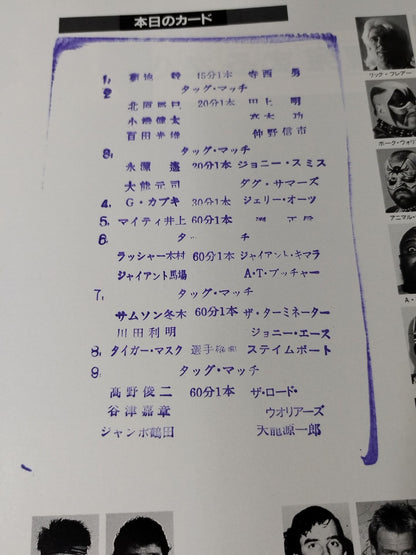 本日のカード
1, 菊地 毅 15分1本 寺西 勇
2 タッグ・マッチ
北原辰巳 20分1本 田上 明
小橋健太
百田光雄 仲野信市
3, タッグ・マッチ
永源 遙 20分1本 ジョニー・スミス
大熊元司 ダグ・サマーズ
4, G・カブキ 30分1本 ジェリー・オーツ
5, マイティ井上 60分1本
6
ラッシャー木村 60分1本 ジャイアント・キマラ
ジャイアント馬場 A・T・ブッチャー
7, タッグ・マッチ
サムソン冬木 60分1本 ザ・ターミネーター
川田利明 ジョニー・エース
8, タイガー・マスク 選手権 スティムボート
9 タッグ・マッチ
高野俊二 60分1本 ザ・ロード・
谷津嘉章 ウオリアーズ
ジャンボ鶴田 天龍源一郎
リック・フレアー
ホーク・ウォリ
アニマル・
A・